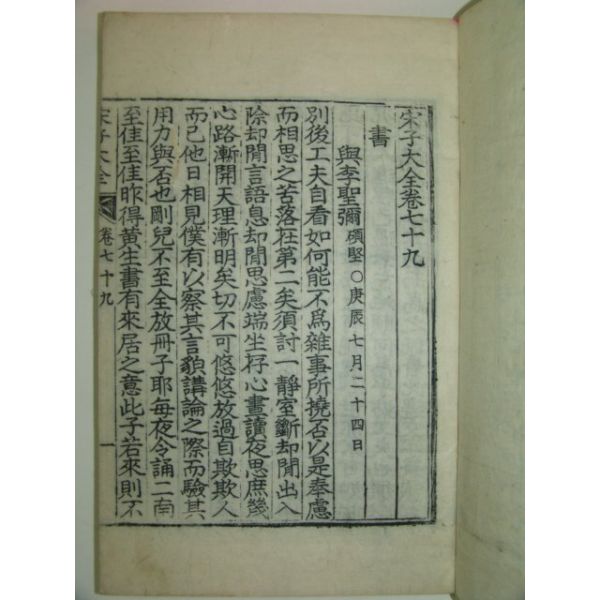 宋子大全卷七十九
書
與李聖彌 碩堅○庚辰七月二十四日
別後工夫自看如何能不爲雜事所撓否以是奉慮
而相思之苦落在第二矣須討一靜室斷却閒出入
除却閒言語息却閒思慮端坐存心晝讀夜思庶幾
心路漸開天理漸明矣切不可悠悠放過自欺欺人
而已他日相見僕有以察其言貌講論之際而驗其
用力與否也剛兒不至全放冊子耶每夜令誦二南
至佳至佳昨得黃生書有來居之意此子若來則不
宋子大全 卷七十九 一